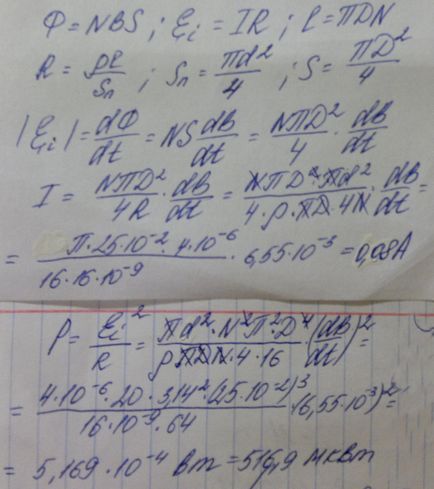 Ф = NBS ; Ɛi = IR ; l = ПDN
R = ρl/Sп ; Sп = Пd²/4 ; S = ПD²/4
|Ɛi| = dФ/dt = NS dB/dt = NПD²/4 · dB/dt
I = NПD²/4R · dB/dt = NПD²·Пd²/4·ρ·ПD·4N · dB/dt =
= П·25·10⁻²·4·10⁻⁶/16·16·10⁻⁹ · 6,55·10⁻³ = 0,08А
P = Ɛi²/R = Пd²·N²П²·D⁴/ρПDN·4·16 · (dB/dt)² =
= 4·10⁻⁶·20·3,14²·(25·10⁻²)³/16·10⁻⁹·64 · (6,55·10⁻³)² =
= 5,169·10⁻⁴ Вт = 516,9 мкВт